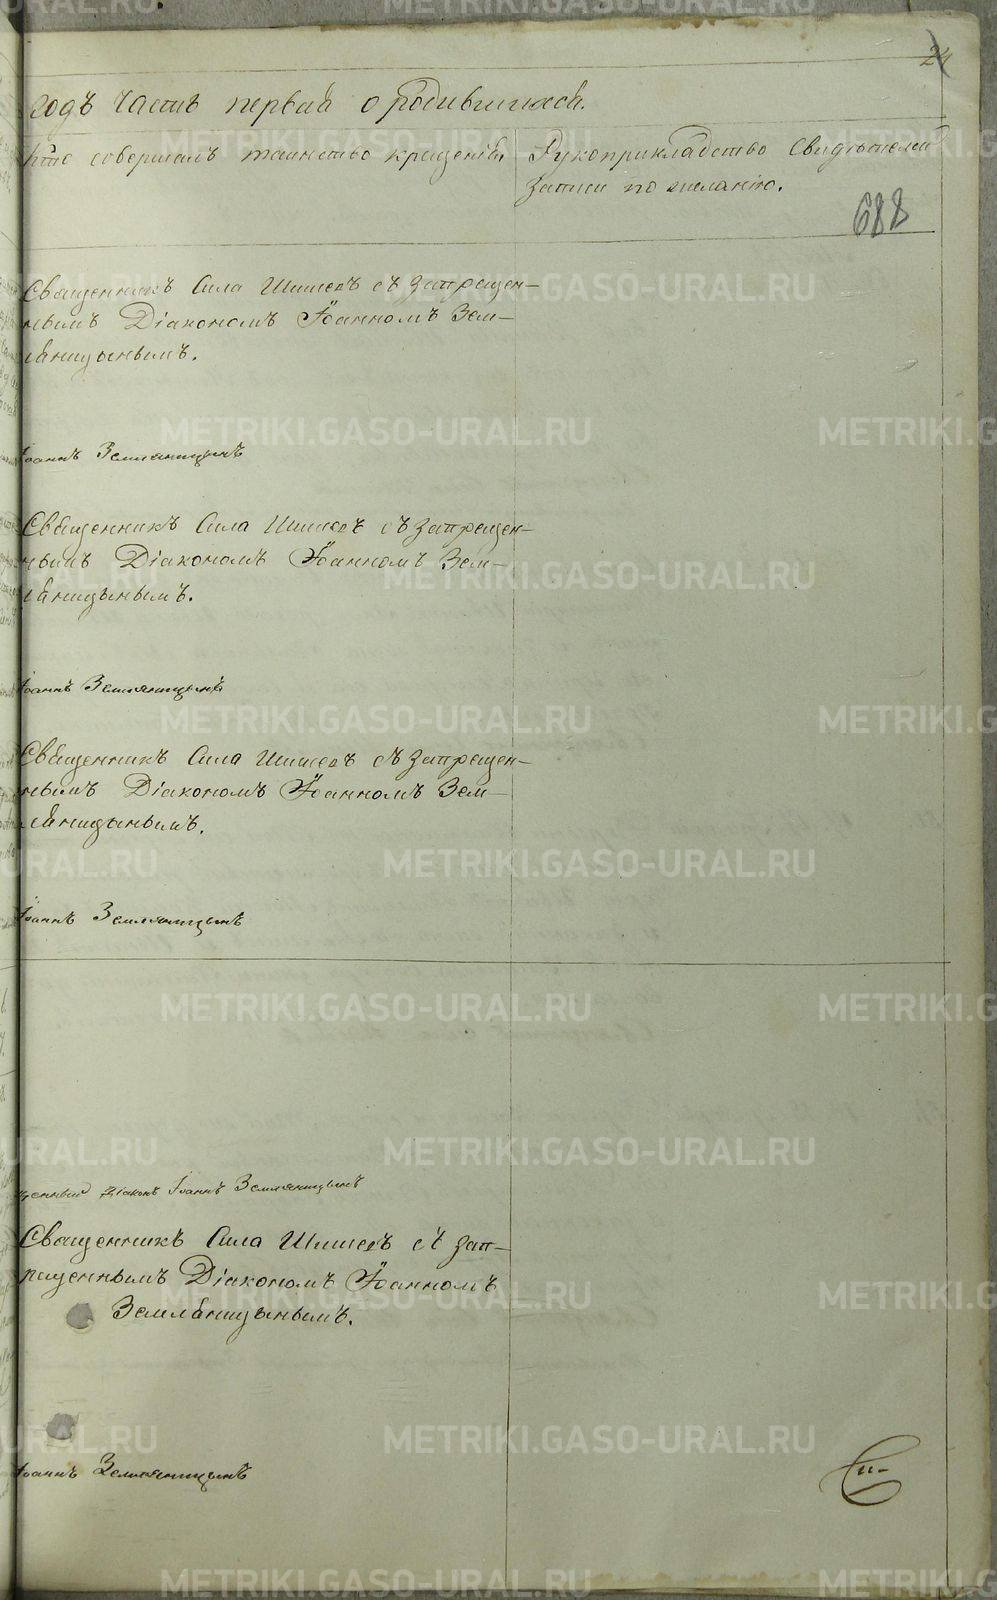 24
годъ часть первая о родившихся.
Кто совершалъ таинство крещенія
Рукоприкладство свидѣтелей
записи по желанію.
688
Священникъ Сила Шишевъ съ запрещен-
нымъ Діакономъ Іоанномъ Зем-
ляницынымъ.
Іоаннъ Земляницынъ
Священникъ Сила Шишевъ съ запрещен-
нымъ Діакономъ Іоанномъ Зем-
ляницынымъ.
Іоаннъ Земляницынъ
Священникъ Сила Шишевъ съ запрещен-
нымъ Діакономъ Іоанномъ Зем-
ляницынымъ.
Іоаннъ Земляницынъ
щенный Діаконъ Іоаннъ Земляницынъ
Священникъ Сила Шишевъ съ зап-
рещеннымъ Діакономъ Іоанномъ
Земляницынымъ.
Іоаннъ Земляницынъ
METRIKI.GASO-URAL.RU